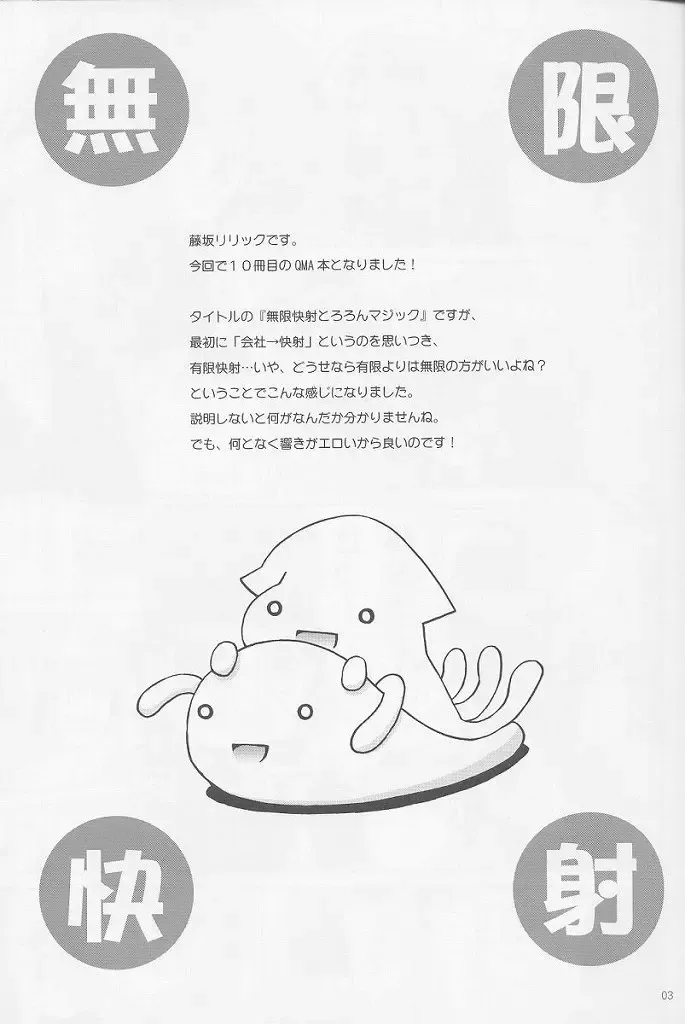 無
限
藤坂リリックです。
今回で１０冊目のQMA本となりました！
タイトルの『無限快射とろろんマジック』ですが、
最初に「会社→快射」というのを思いつき、
有限快射…いや、どうせなら有限よりは無限の方がいいよね？
ということでこんな感じになりました。
説明しないと何がなんだか分かりませんね。
でも、何となく響きがエロいから良いのです！
快
射
03